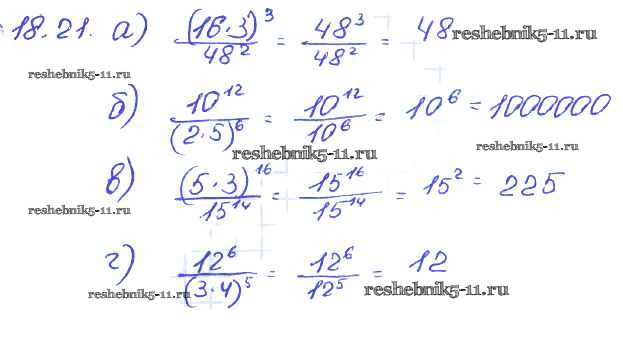 18.21. а) (16·3)³/48² = 48³/48² = 48 reshebnik5-11.ru
reshebnik5-11.ru
б) 10¹²/(2·5)⁶ = 10¹²/10⁶ = 10⁶ = 1000000
reshebnik5-11.ru reshebnik5-11.ru
в) (5·3)¹⁶/15¹⁴ = 15¹⁶/15¹⁴ = 15² = 225
reshebnik5-11.ru
г) 12⁶/(3·4)⁵ = 12⁶/12⁵ = 12
reshebnik5-11.ru reshebnik5-11.ru